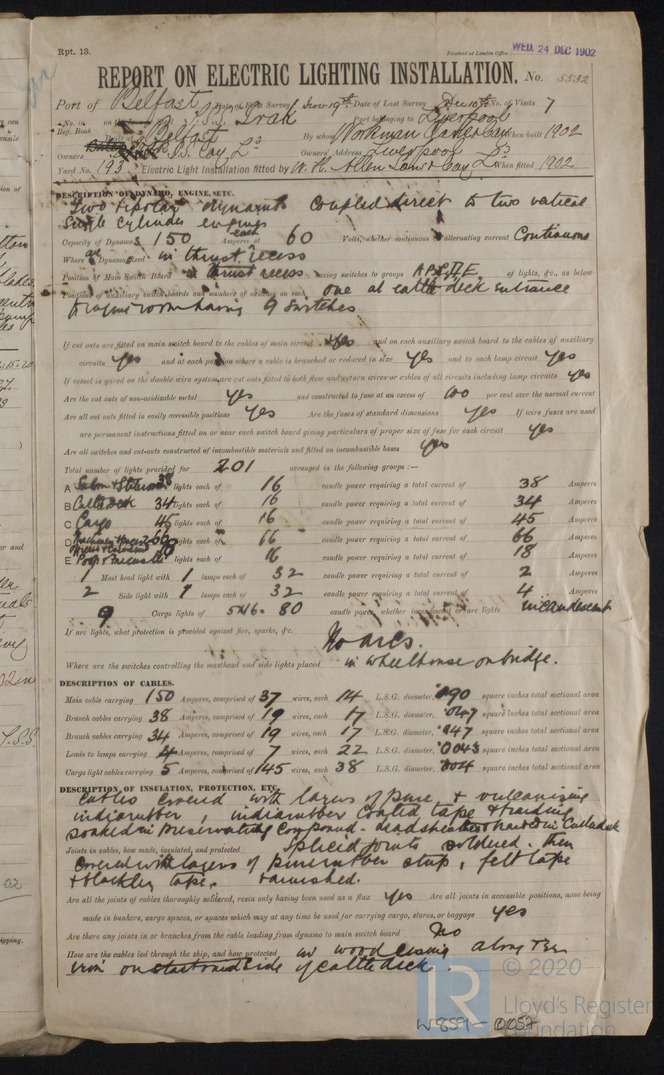 Rpt. 13.
Received at London Office WED. 24 DEC 1902
REPORT ON ELECTRIC LIGHTING INSTALLATION. No. 5532
Port of Belfast Date of First Survey Nov 19th Date of Last Survey Dec 10th No. of Visits 7
No. in Reg. Book on the S.S. Irak Port belonging to Liverpool
Built at Belfast By whom Workman Clark & Co Ld When built 1902
Owners Owners' Address Liverpool
Yard No. 193 Electric Light Installation fitted by W. H. Allen Son & Coy Ld When fitted 1902
DESCRIPTION OF DYNAMO, ENGINE, ETC.
Two bipolar dynamos coupled direct to two vertical
single cylinder engines
Capacity of Dynamos 150 each Amperes at 60 Volts, whether continuous or alternating current Continuous
Where are Dynamos fixed in thrust recess
Position of Main Switch Board in thrust recess having switches to groups A B C D E of lights, &c., as below
Positions of auxiliary switch boards and numbers of switches on each one at cattle deck entrance
to engine room having 9 switches
If cut outs are fitted on main switch board to the cables of main circuit yes and on each auxiliary switch board to the cables of auxiliary
circuits yes and at each position where a cable is branched or reduced in size yes and to each lamp circuit yes
If vessel is wired on the double wire system are cut outs fitted to both flow and return wires or cables of all circuits including lamp circuits yes
Are the cut outs of non-oxidizable metal yes and constructed to fuse at an excess of 100 per cent over the normal current
Are all cut outs fitted in easily accessible positions yes Are the fuses of standard dimensions yes If wire fuses are used
are permanent instructions fitted on or near each switch board giving particulars of proper size of fuse for each circuit yes
Are all switches and cut-outs constructed of incombustible materials and fitted on incombustible bases yes
Total number of lights provided for 201 arranged in the following groups :—
A Saloon & Staterooms 38 lights each of 16 candle power requiring a total current of 38 Amperes
B Cattle deck 34 lights each of 16 candle power requiring a total current of 34 Amperes
C Cargo 45 lights each of 16 candle power requiring a total current of 45 Amperes
D Machinery 66 lights each of 16 candle power requiring a total current of 66 Amperes
E lights each of 16 candle power requiring a total current of 18 Amperes
1 Mast head light with 1 lamps each of 32 candle power requiring a total current of 2 Amperes
2 Side light with 1 lamps each of 32 candle power requiring a total current of 4 Amperes
9 Cargo lights of 5x16 = 80 candle power, whether incandescent or arc lights incandescent
If arc lights, what protection is provided against fire, sparks, &c. No arcs.
Where are the switches controlling the masthead and side lights placed in wheelhouse on bridge.
DESCRIPTION OF CABLES.
Main cable carrying 150 Amperes, comprised of 37 wires, each 14 L.S.G. diameter, square inches total sectional area
Branch cables carrying 38 Amperes, comprised of 19 wires, each 17 L.S.G. diameter, .047 square inches total sectional area
Branch cables carrying 34 Amperes, comprised of 19 wires, each 17 L.S.G. diameter, .047 square inches total sectional area
Leads to lamps carrying 4 Amperes, comprised of 7 wires, each 22 L.S.G. diameter, .0043 square inches total sectional area
Cargo light cables carrying 5 Amperes, comprised of 145 wires, each 38 L.S.G. diameter, .004 square inches total sectional area
DESCRIPTION OF INSULATION, PROTECTION, ETC.
Cables covered with layers of pure & vulcanising
indiarubber, indiarubber coated tape & braiding
soaked in preservating compound - in Cattledeck
Joints in cables, how made, insulated, and protected Spliced joints soldered. then
covered with layers of pure rubber strip, felt tape
& blackley tape. & varnished.
Are all the joints of cables thoroughly soldered, resin only having been used as a flux yes Are all joints in accessible positions, none being
made in bunkers, cargo spaces, or spaces which may at any time be used for carrying cargo, stores, or baggage yes
Are there any joints in or branches from the cable leading from dynamo to main switch board No
How are the cables led through the ship, and how protected in wood casing along
on starboard side of cattle deck.
© 2020
LR
Lloyd's Register
Foundation
W859-0057